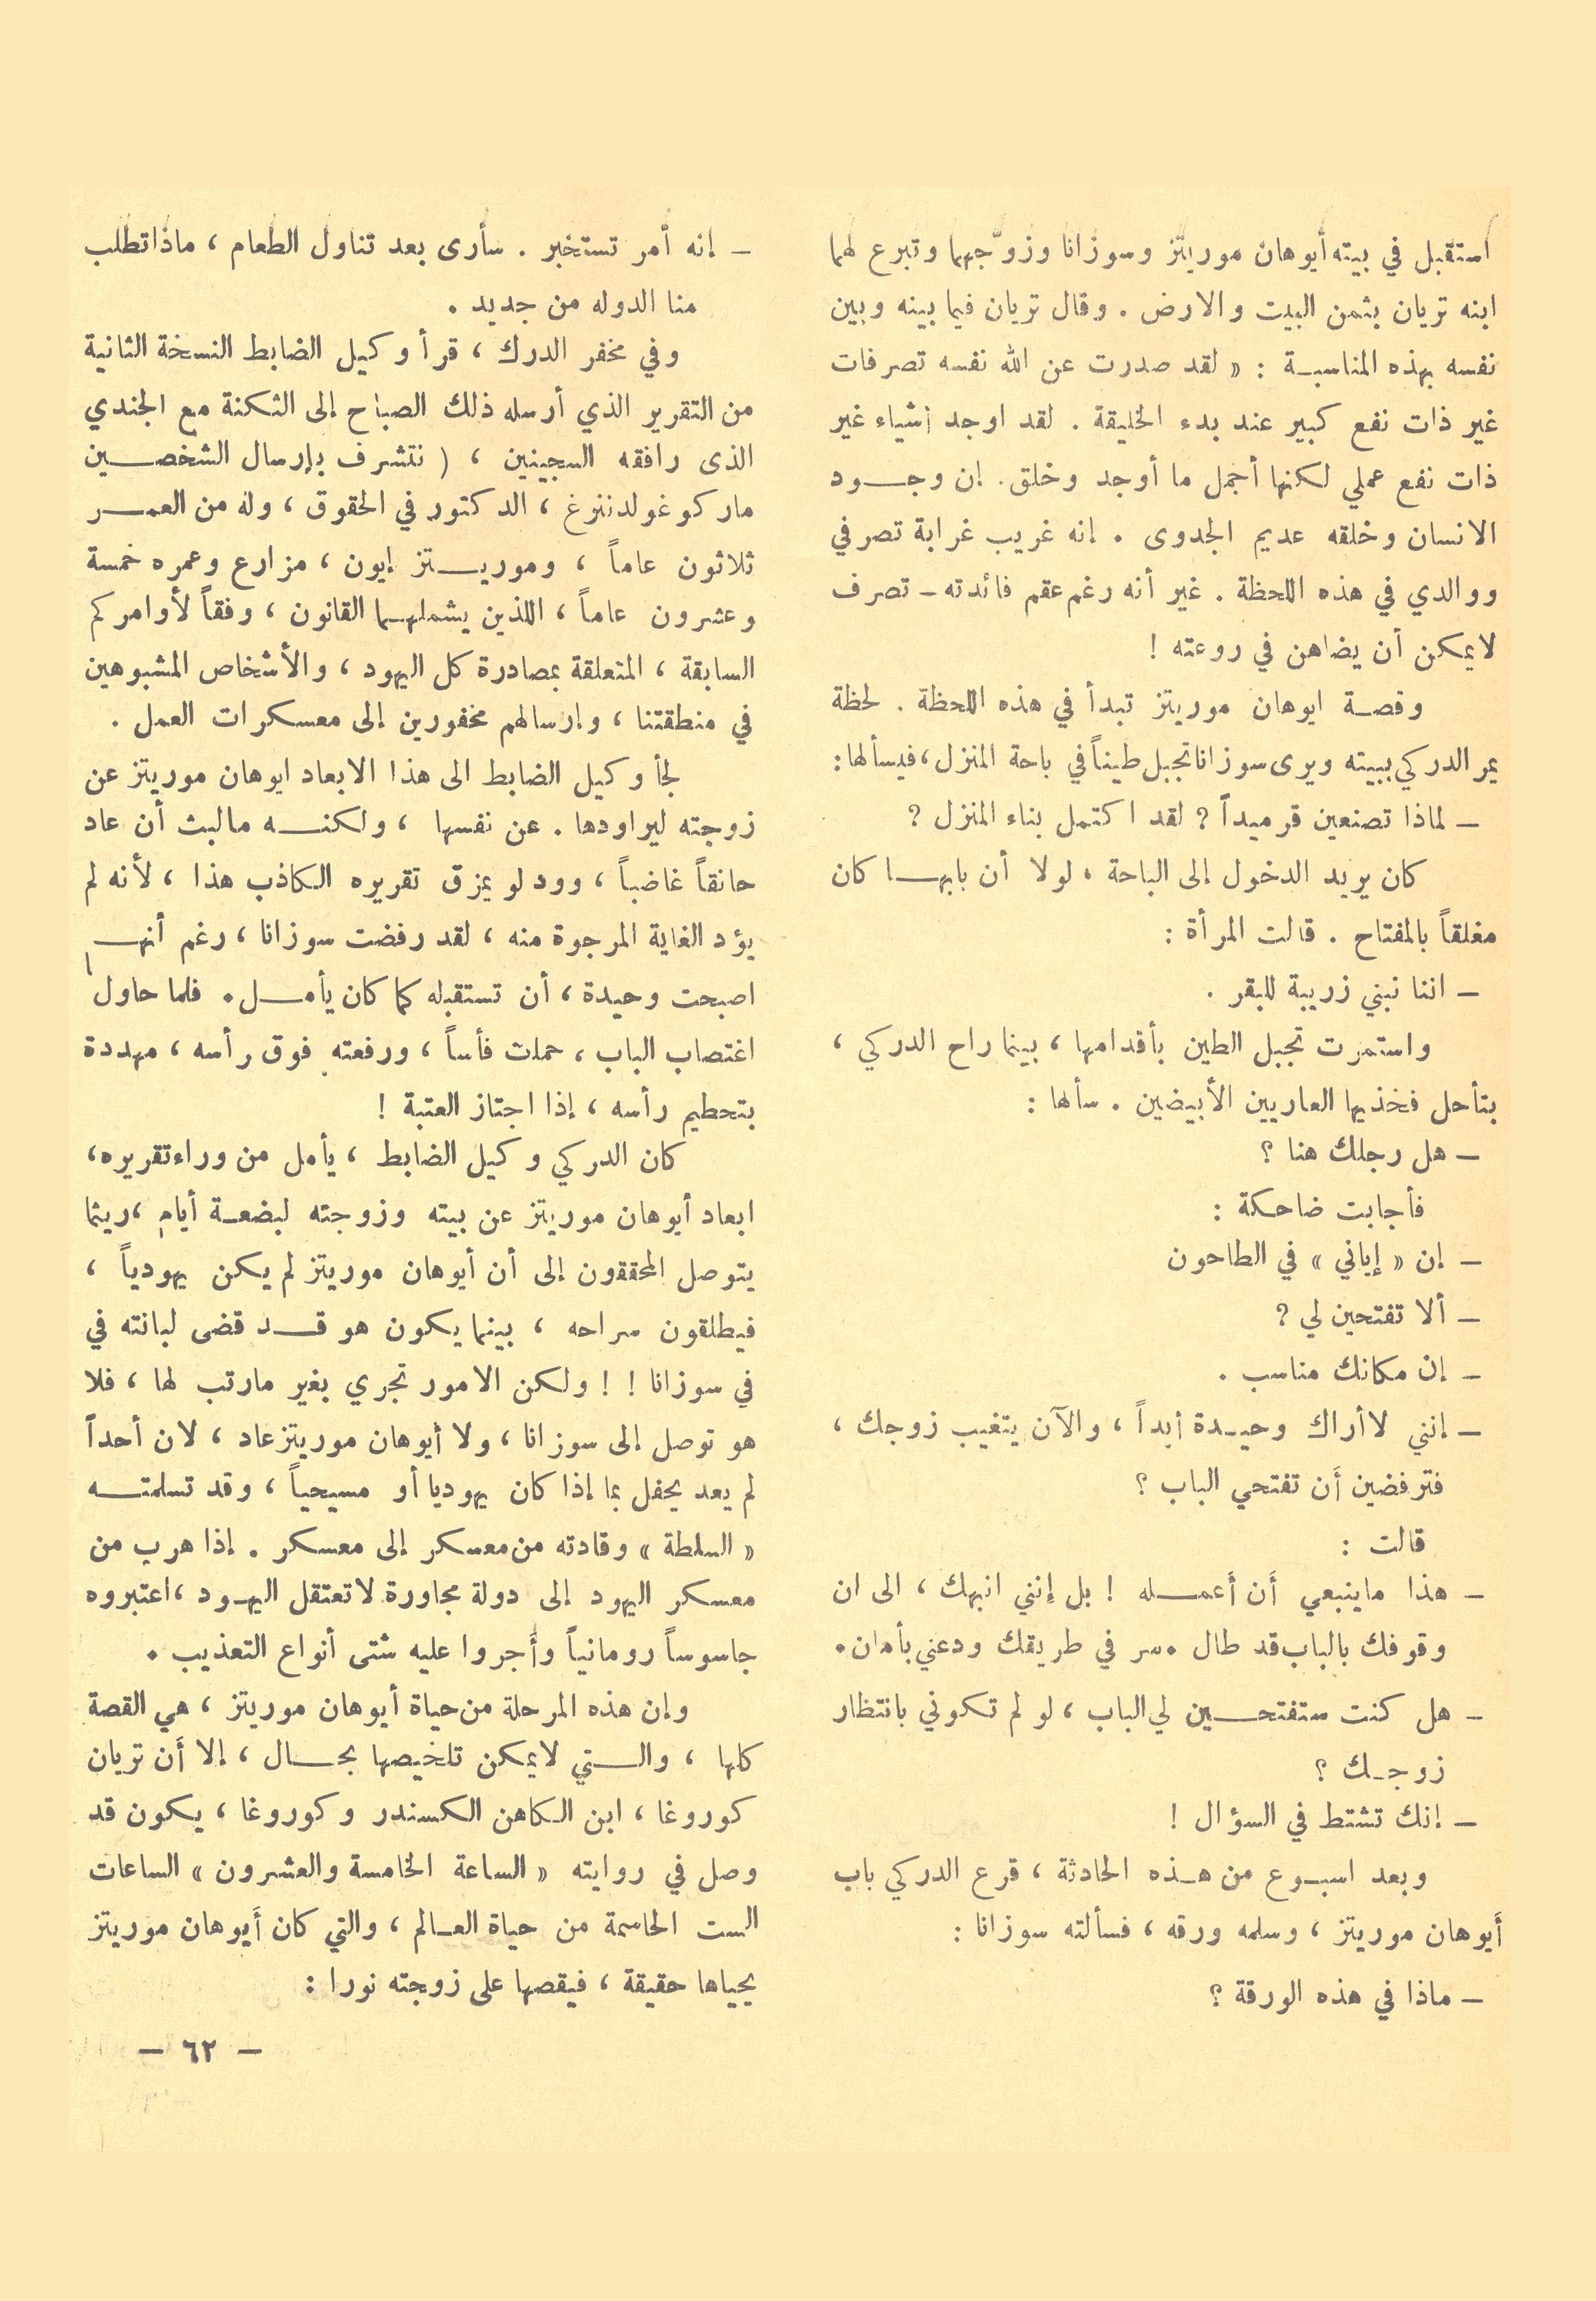 استقبل في بيته أيوهان موريتز وسوزانا وزوّجهما وتبرع لهما
ابنه تريان بثمن البيت والارض . وقال تريان فيما بينه وبين
نفسه بهذه المناسبة : « لقد صدرت عن الله نفسه تصرفات
غير ذات نفع كبير عند بدء الخليقة . لقد اوجد أشياء غير
ذات نفع عملي لكنها أجمل ما أوجد وخلق . إن وجود
الانسان وخلقه عديم الجدوى . إنه غريب غرابة تصرفي
ووالدي في هذه اللحظة . غير أنه رغم عقم فائدته – تصرف
لا يمكن أن يضاهن في روعته !
وقصة ايوهان موريتز تبدأ في هذه اللحظة . لحظة
يمر الدركي ببيته ويرى سوزانا تجبل طيناً في باحة المنزل ، فيسألها :
– لماذا تصنعين قرميداً ؟ لقد اكتمل بناء المنزل ؟
كان يريد الدخول إلى الباحة ، لولا أن بابها كان
مغلقاً بالمفتاح . قالت المرأة :
– اننا نبني زريبة للبقر .
واستمرت تجبل الطين بأقدامها ، بينما راح الدركي ،
بتأحل فخذيها العاريين الأبيضين . سألها :
– هل رجلك هنا ؟
فأجابت ضاحكة :
– إن « إياني » في الطاحون
– ألا تفتحين لي ؟
– إن مكانك مناسب .
– إنني لا أراك وحيدة أبداً ، والآن يتغيب زوجك ،
فترفضين أن تفتحي الباب ؟
قالت :
– هذا ماينبعي أن أعمله ! بل إنني انبهك ، الى ان
وقوفك بالباب قد طال . سر في طريقك ودعني بأمان .
– هل كنت ستفتحين لي الباب ، لو لم تكوني بانتظار
زوجك ؟
– إنك تشتط في السؤال !
وبعد اسبوع من هذه الحادثة ، قرع الدركي باب
أيوهان موريتز ، وسلمه ورقه ، فسألته سوزانا :
– ماذا في هذه الورقة ؟
– إنه أمر تستخبر . سأرى بعد تناول الطعام ، ماذا تطلب
منا الدوله من جديد .
وفي مخفر الدرك ، قرأ وكيل الضابط النسخة الثانية
من التقرير الذي أرسله ذلك الصباح إلى الثكنة مع الجندي
الذى رافقه السجينين ، ( نتشرف بإرسال الشخصين
ماركو غولدنبرغ ، الدكتور في الحقوق ، وله من العمر
ثلاثون عاماً ، وموريتز إيون ، مزارع وعمره خمسة
وعشرون عاماً ، اللذين يشملهما القانون ، وفقاً لأوامركم
السابقة ، المتعلقة بمصادرة كل اليهود ، والأشخاص المشبوهين
في منطقتنا ، وإرسالهم مخفورين إلى معسكرات العمل .
لجأ وكيل الضابط الى هذا الابعاد ايوهان موريتز عن
زوجته ليراودها . عن نفسها ، ولكنه مالبث أن عاد
حانقاً غاضباً ، وود لو يمزق تقريره الكاذب هذا ، لأنه لم
يؤد الغاية المرجوة منه ، لقد رفضت سوزانا ، رغم أنها
اصبحت وحيدة ، أن تستقبله كما كان يأمل . فلما حاول
اغتصاب الباب ، حملت فأساً ، ورفعته فوق رأسه ، مهددة
بتحطيم رأسه ، إذا اجتاز العتبة !
كان الدركي وكيل الضابط ، يأمل من وراء تقريره ،
ابعاد أيوهان موريتز عن بيته وزوجته لبضعة أيام ، ريثما
يتوصل المحققون إلى أن أيوهان موريتز لم يكن يهودياً ،
فيطلقون سراحه ، بينما يكون هو قد قضى لبانته في
في سوزانا ! ! ولكن الامور تجري بغير مارتب لها ، فلا
هو توصل إلى سوزانا ، ولا أيوهان موريتز عاد ، لان أحداً
لم يعد يحفل بما إذا كان يهوديا أو مسيحياً ، وقد تسلمته
« السلطة » وقادته من معسكر إلى معسكر . إذا هرب من
معسكر اليهود إلى دولة مجاورة لا تعتقل اليهود ، اعتبروه
جاسوساً رومانياً وأجروا عليه شتى أنواع التعذيب .
وإن هذه المرحلة من حياة أيوهان موريتز ، هي القصة
كلها ، والتي لا يمكن تلخيصها بحال ، إلا أن تريان
كوروغا ، ابن الكاهن الكسندر وكوروغا ، يكون قد
وصل في روايته « الساعة الخامسة والعشرون » الساعات
الست الحاسمة من حياة العالم ، والتي كان أيوهان موريتز
يحياها حقيقة ، فيقصها على زوجته نورا :
– ٦٢ –